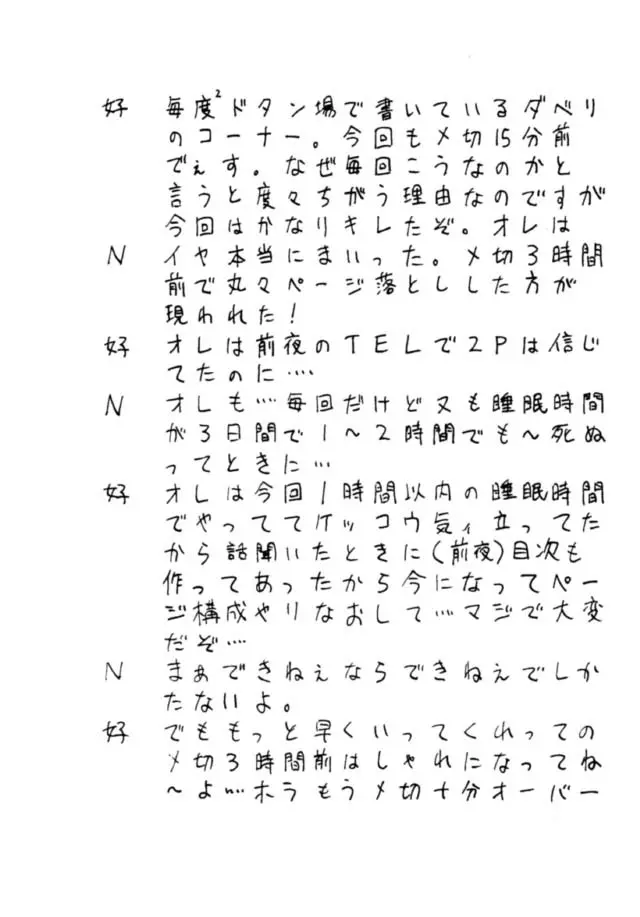 好 毎度²ドタン場で書いているダベリ
のコーナー。今回も〆切15分前
でぇす。なぜ毎回こうなのかと
言うと度々ちがう理由なのですが
今回はかなりキレたぞ。オレは
N イヤ本当にまいった。〆切3時間
前で丸々ページ落としした方が
現われた!
好 オレは前夜のTELで2Pは信じ
てたのに‥‥
N オレも…毎回だけど又も睡眠時間
が3日間で1〜2時間でも〜死ぬ
ってときに…
好 オレは今回1時間以内の睡眠時間
でやっててケッコウ気ィ立ってた
から話聞いたときに(前夜)目次も
作ってあったから今になってペー
ジ構成やりなおして…マジで大変
だぞ…
N まぁできねぇならできねぇでしか
たないよ。
好 でももっと早くいってくれっての
〆切3時間前はしゃれになってね
〜よ…ホラもう〆切十分オーバー